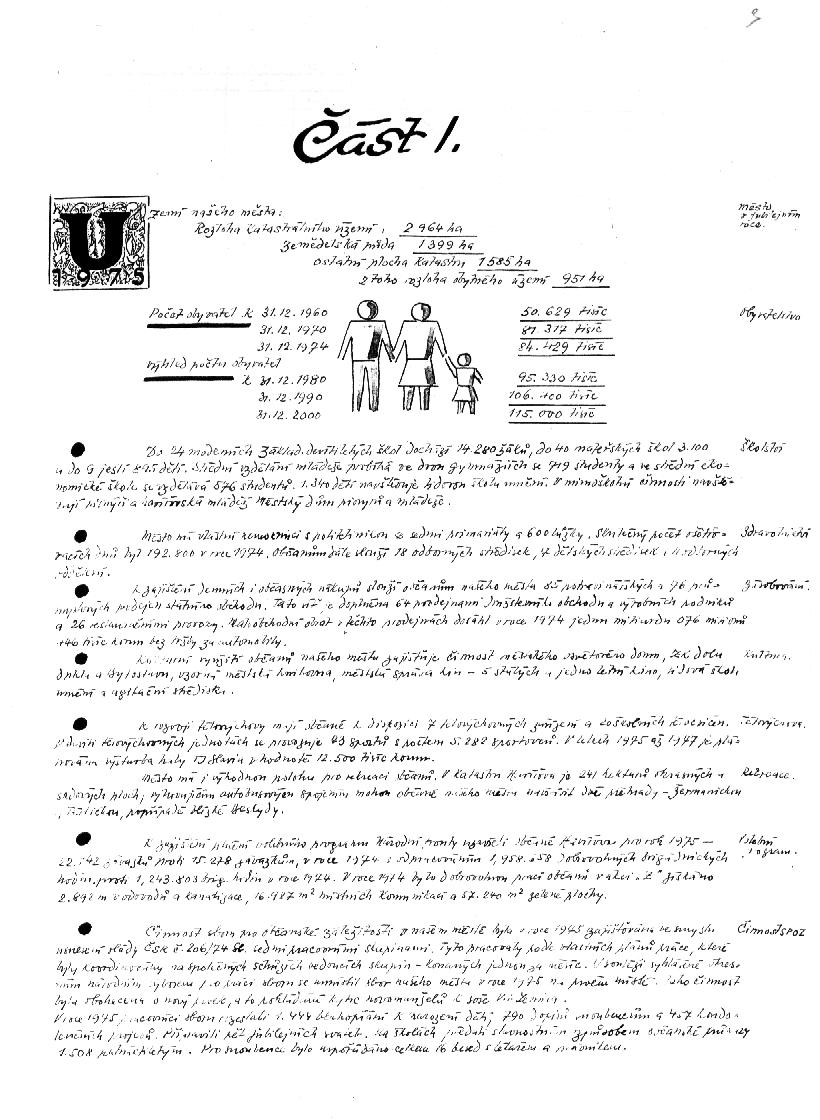 9
Část I.
U
1975
zemí našeho města:
města
v jubilejním
roce.
Rozloha katastrálního území: 2 964 ha
zemědělská půda 1 399 ha
ostatní plocha katastru 1 585 ha
z toho rozloha obytného území 951 ha
Počet obyvatel k 31.12.1960 50.629 tisíc
obyvatelstvo
31.12.1970 81.317 tisíc
31.12.1974 84.429 tisíc
výhled počtu obyvatel
k 31.12.1980 95.330 tisíc
31.12.1990 106.400 tisíc
31.12.2000 115.000 tisíc
Do 24 moderních základ. devítiletých škol dochází 14.280 žáků, do 40 mateřských škol 3.100
Školství
a do 9 jeslí 895 dětí. Střední vzdělání mládeže probíhá ve dvou gymnáziích se 719 studenty a ve střední eko-
nomické škole se vzdělává 576 studentů. 1.340 dětí navštěvuje lidovou školu umění. V mimoškolní činnosti navště-
vují pilnýji a mládež Městský dům pionýrů a mládeže.
Město má vlastní nemocnici s poliklinikou se sedmi primariáty a 600 lůžky. Skutečný počet ošetřo-
Zdravotnictví
vacích dnů byl 192.800 v roce 1974. Občanům dále slouží 18 odborných středisek, 4 dětských středisek a
oddělení.
K zajištění denních i občasných nákupů slouží občanům našeho města 85 potravinářských a 76 prů-
Zásobování.
myslových prodejen státního obchodu. Tato síť je doplněna 64 prodejnami družstevního obchodu a výrobních podniků
a 26 restauračními provozy. Maloobchodní obrat v těchto prodejnách dosáhl v roce 1974 jednu miliardu 076 milionů
446 tisíc korun bez tržby za automobily.
Kulturní vyžití občanů našeho města zajišťuje činnost městského osvětového domu, ZK dolu
Kultura.
Dukla a Bytostavu, vzorná městská knihovna, městská správa kin - 5 stálých a jedno letní kino, lidová škola
umění a agitační střediska.
K rozvoji tělovýchovy mají občané k dispozici 7 tělovýchovných zařízení a 20 školních tělocvičen.
Tělovýchova.
V devíti tělovýchovných jednotách se provozuje 43 sportů s počtem 5.282 sportovců. V letech 1975 až 1977 je plá-
nována výstavba haly TJ Slavia v hodnotě 12.500 tisíc korun.
Město má i výhodnou polohu pro rekreaci občanů. V katastru Havířova je 241 hektarů okrasných a
Rekreace.
sadových ploch, vyhovujícím autobusovým spojením mohou občané našeho města navštívit dvě přehrady - Žermanickou
a Těrlickou, popřípadě blízké Beskydy.
K zajištění plnění volebního programu Národní fronty uzavřeli občané Havířova pro rok 1975 -
Volební
program.
22.142 závazků proti 15.278 závazkům, v roce 1974 s odpracováním 1,958.658 dobrovolných brigádnických
hodin, proti 1,243.803 brig. hodin v roce 1974. V roce 1974 bylo dobrovolnou prací občanů v akci "Z" získáno
2.892 m vodovodů a kanalizace, 16.987 m² místních komunikací a 57.240 m² zelené plochy.
Činnost sboru pro občanské záležitosti v našem městě byla v roce 1975 zajišťována ve smyslu
Činnost SPOZ
usnesení vlády ČSR č. 206/74 Sb. sedmi pracovními skupinami. Tyto pracovaly podle vlastních plánů práce, které
byly koordinovány na společných schůzích vedoucích skupin - konaných jednou za měsíc. V soutěži vyhlášené okres-
ním národním výborem pro práci sborů se umístil sbor našeho města v roce 1975 na prvém místě. Jeho činnost
byla obohacena o nový prvek, a to pokládání kytic novomanželů k soše Vítězství.
V roce 1975 pracovníci sboru rozeslali 1.444 blahopřání k narození dětí, 790 dopisů snoubencům a 457 kondo-
lenčních projevů. Připravili pět jubilejních svateb, na školách předali slavnostním způsobem občanské průkazy
1.508 patnáctiletým. Pro snoubence bylo uspořádáno celkem 16 besed s lékařem a právníkem.